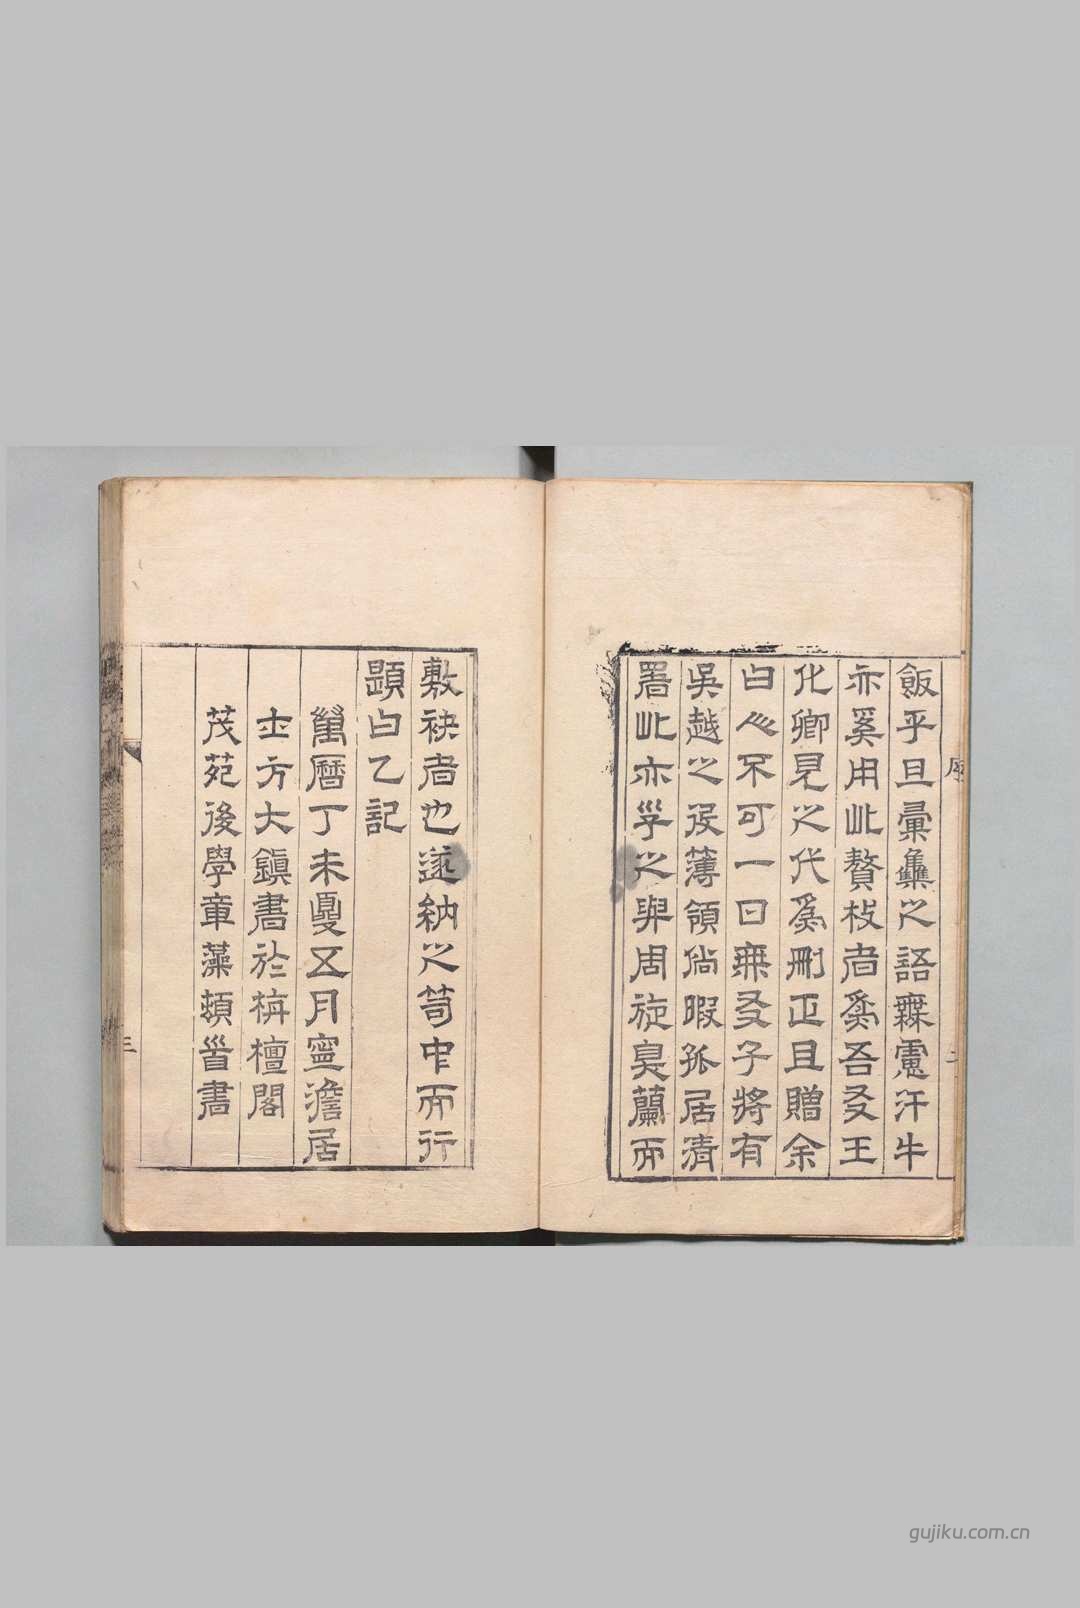 序
二
飯乎旦彙雧之語無慮汗牛
亦奚用此贅枝者爲吾友王
化卿見之代爲刪正且贈余
曰必不可一日無友子將有
吳越之役簿領倘暇孤居清
署此亦孚之與周旋臭蘭而
敷袂者也遂納之笥中而行
題曰乙記
萬曆丁未夏五月寧澹居
士方大鎮書於栴檀閣
茂苑後學章藻頓首書
三
gujiku.com.cn